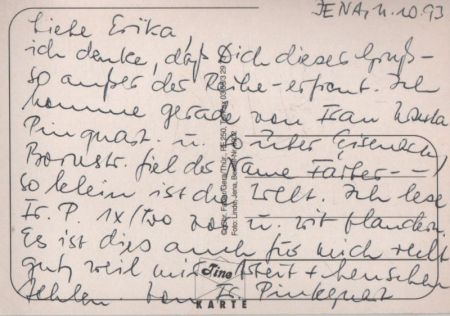 JENA, 11.10.93
Liebe Erika,
ich denke, daß Dich dieser Gruß-
so außer der Reihe-erfreut. Ich
komme gerade von Frau
Pinquart. u. so über Eisenach,
Bornstr. fiel der Name Färber--
so klein ist die Welt. Ich lese
Fr. P. 1x/Wo vor u. wir plaudern.
Es ist dies auch für mich recht
gut, weil mir Arbeit + Menschen
fehlen. Fr. Pinkquart
Tino
KARTE